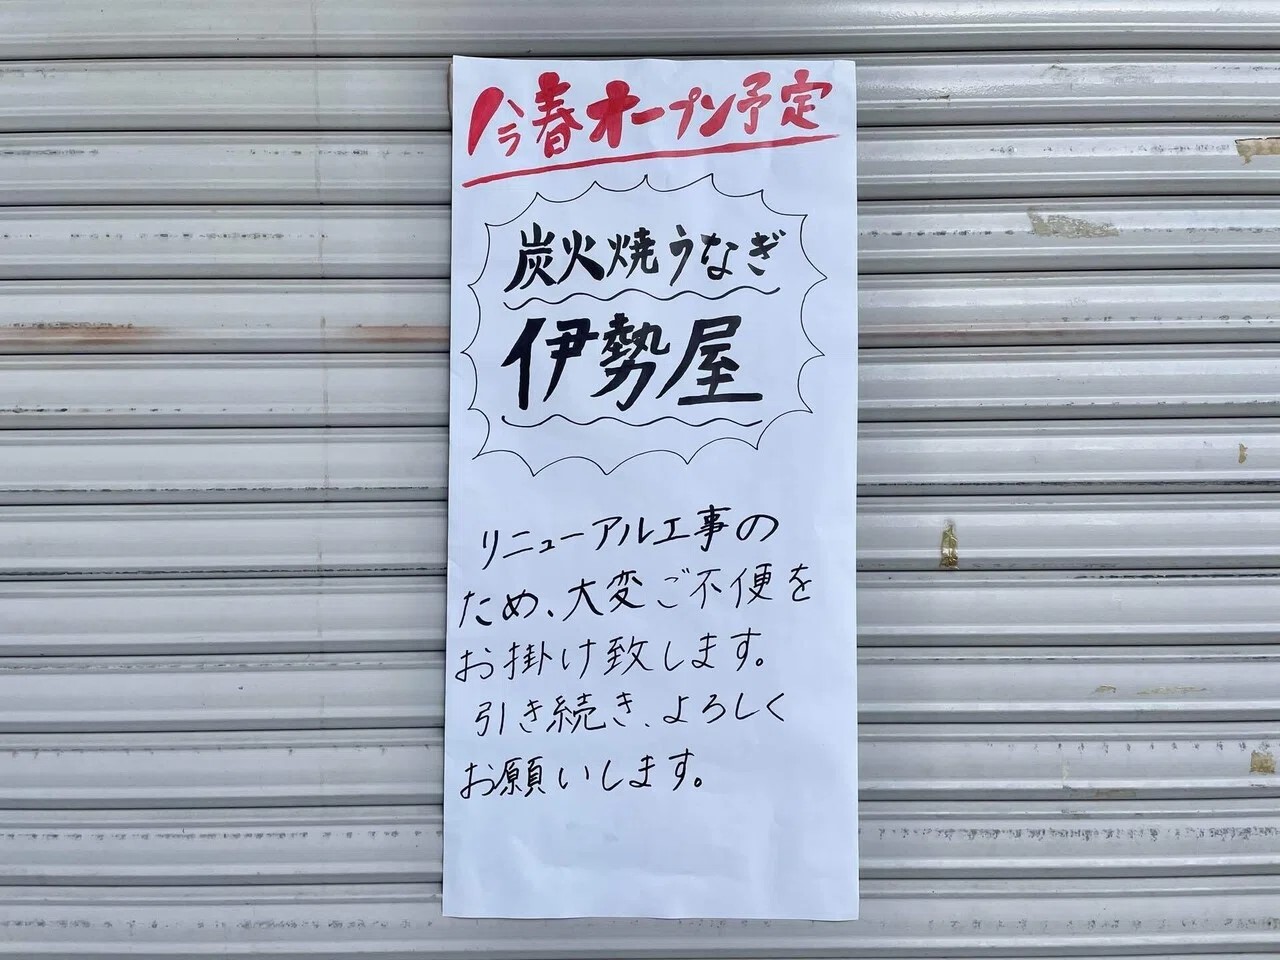 今春オープン予定
炭火焼うなぎ
伊勢屋
リニューアル工事の
ため、大変ご不便を
お掛け致します。
引き続き、よろしく
お願いします。